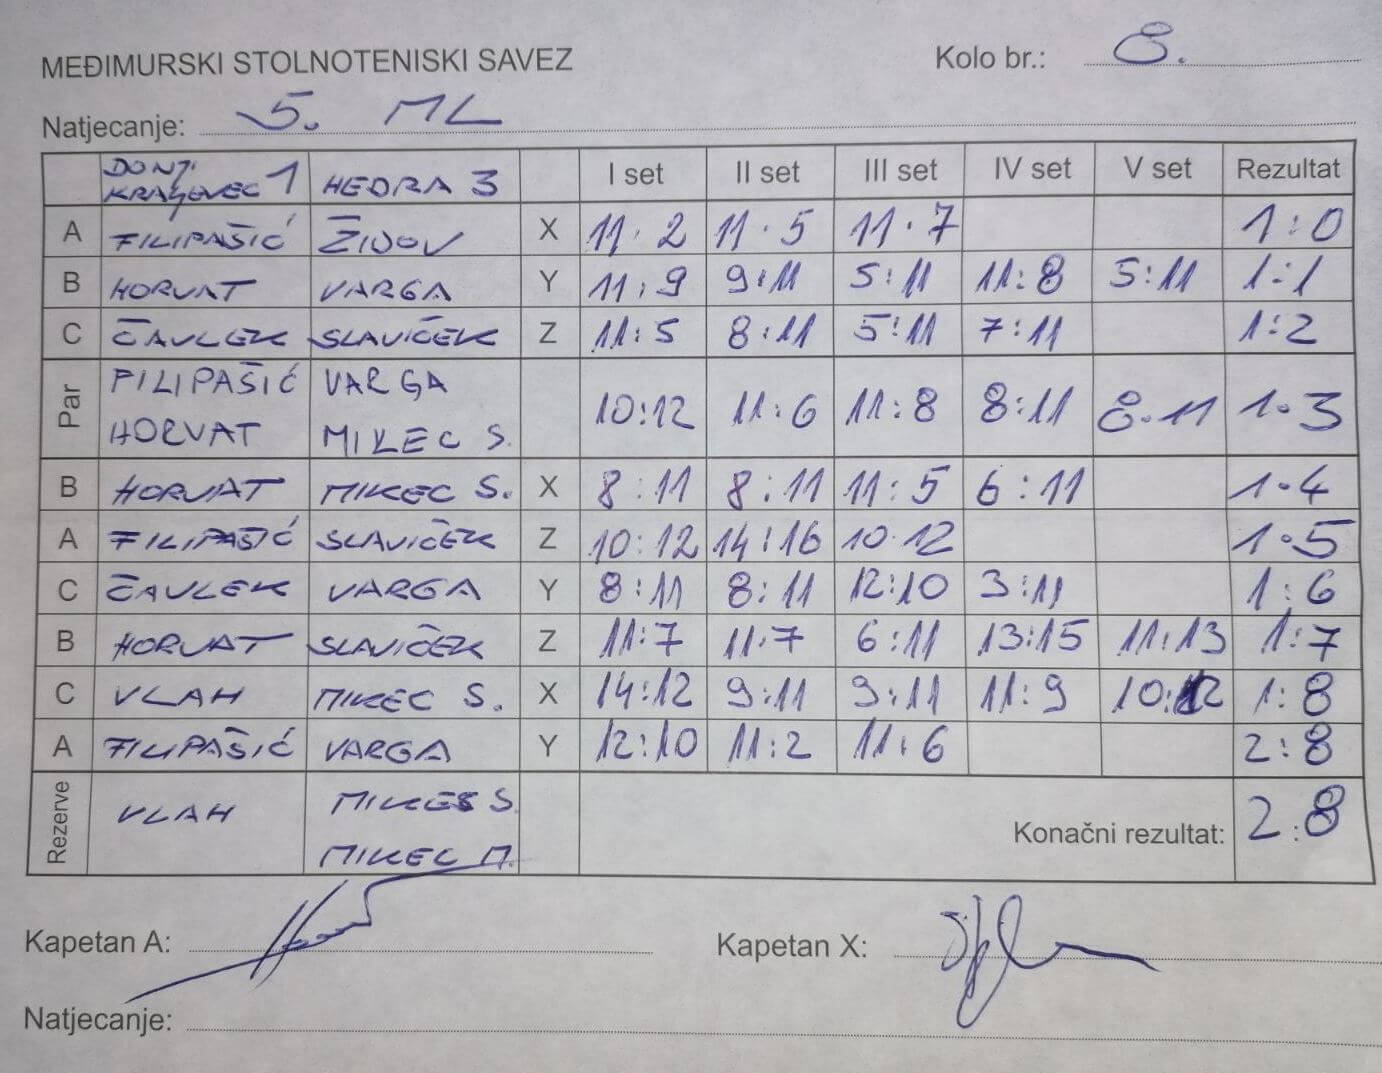 MEĐIMURSKI STOLNOTENISKI SAVEZ Kolo br.: 8.
Natjecanje: 5. ML
DONJI KRALJEVEC 1 HEDRA 3 I set II set III set IV set V set Rezultat
A FILIPAŠIĆ ŽIDOV X 11·2 11·5 11·7 1:0
B HORVAT VARGA Y 11:9 9:11 5:11 11:8 5:11 1:1
C ČAVLEK SLAVIČEK Z 11:5 8:11 5:11 7:11 1:2
Par FILIPAŠIĆ VARGA
HORVAT MIKEC S. 10:12 11:6 11:8 8:11 8·11 1·3
B HORVAT MIKEC S. X 8:11 8:11 11:5 6:11 1·4
A FILIPAŠIĆ SLAVIČEK Z 10:12 14:16 10·12 1·5
C ČAVLEK VARGA Y 8:11 8:11 12:10 3:11 1:6
B HORVAT SLAVIČEK Z 11:7 11·7 6:11 13:15 11:13 1:7
C VLAH MIKEC S. X 14:12 9:11 9:11 11:9 10:12 1:8
A FILIPAŠIĆ VARGA Y 12:10 11:2 11:6 2:8
Rezerve VLAH MIKEC S.
MIKEC M. Konačni rezultat: 2:8
Kapetan A: Kapetan X:
Natjecanje: